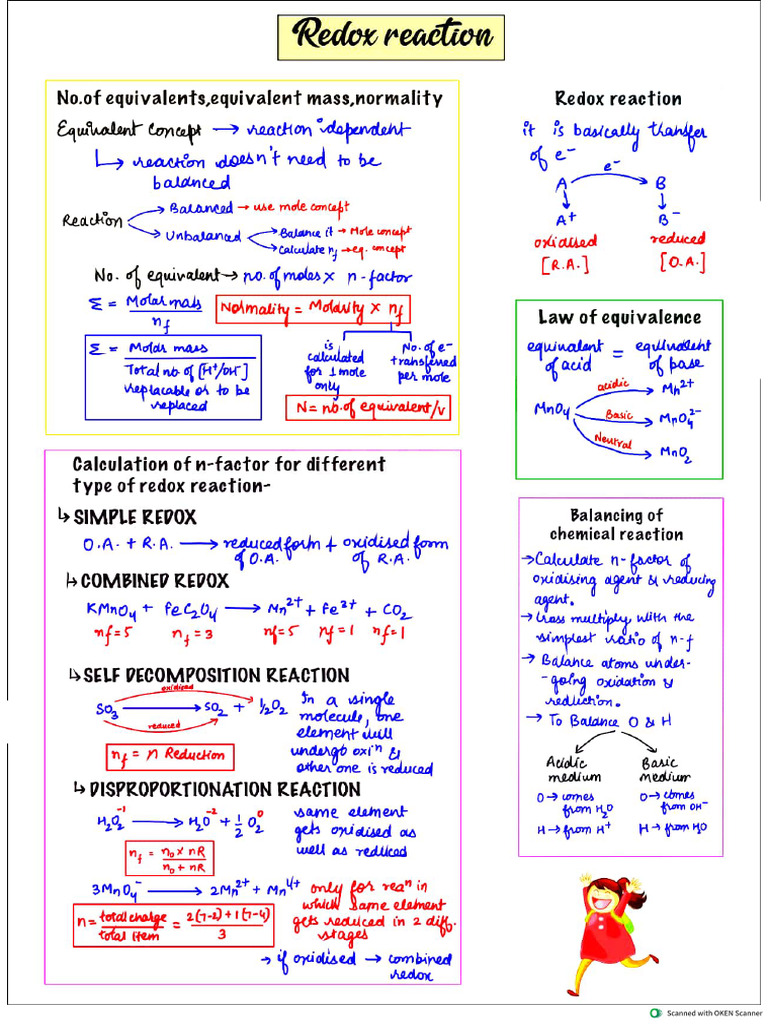 Redox reaction
No.of equivalents,equivalent mass,normality
Equivalent Concept → reaction idependent
↳ reaction doesn't need to be
balanced
Reaction
Balanced → use mole concept
Unbalanced
Balance it → Mole concept
Calculate nf → eq. concept
No. of equivalent → no. of moles × n-factor
Σ = Molar mass / nf
Normality = Molarity × nf
is calculated for 1 mole only
No. of e⁻ transferred per mole
Σ = Molar mass / Total no. of [H⁺/OH⁻]
replacable or to be
replaced
N = no. of equivalent/v
Redox reaction
it is basically transfer
of e⁻
e⁻
A B
A⁺ B⁻
oxidised reduced
[R.A.] [O.A.]
Law of equivalence
equivalent of acid = equivalent of base
MnO₄
acidic Mn²⁺
Basic MnO₄²⁻
Neutral MnO₂
Calculation of n-factor for different
type of redox reaction-
↳ SIMPLE REDOX
O.A. + R.A. → reduced form of O.A. + oxidised form of R.A.
↳ COMBINED REDOX
KMnO₄ + FeC₂O₄ → Mn²⁺ + Fe³⁺ + CO₂
nf=5 nf=3 nf=5 nf=1 nf=1
↳ SELF DECOMPOSITION REACTION
oxidised
SO₃ → SO₂ + 1/2 O₂
reduced
nf = n Reduction
In a single
molecule, one
element will
undergo oxiⁿ &
other one is reduced
↳ DISPROPORTIONATION REACTION
H₂O₂⁻¹ → H₂O⁻² + 1/2 O₂⁰
same element
gets oxidised as
well as reduced
nf = no × nR / no + nR
3MnO₄⁻ → 2Mn²⁺ + Mn⁴⁺
n = total charge / total item = 2(7-2)+1(7-4) / 3
only for reaⁿ in
which same element
gets reduced in 2 diff.
stages
→ if oxidised → combined
redox
Balancing of
chemical reaction
→ Calculate n-factor of
oxidising agent & reducing
agent.
→ Cross multiply with the
simplest ratio of n-f
→ Balance atoms under-
-going oxidation &
reduction.
→ To Balance O & H
Acidic medium
O → comes from H₂O
H → from H⁺
Basic medium
O → comes from OH⁻
H → from H₂O
Scanned with OKEN Scanner